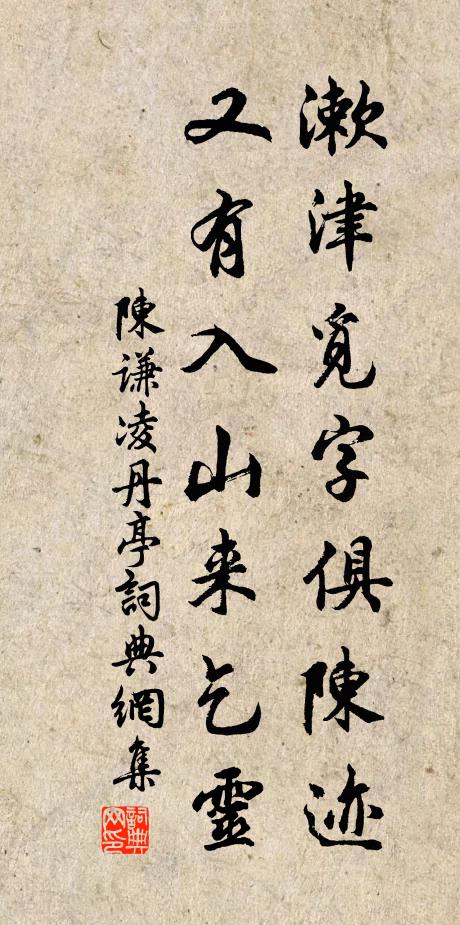 漱津覓字俱陳迹
又有入山来乞靈
陳謙凌丹亭詞典網集
詞典网印